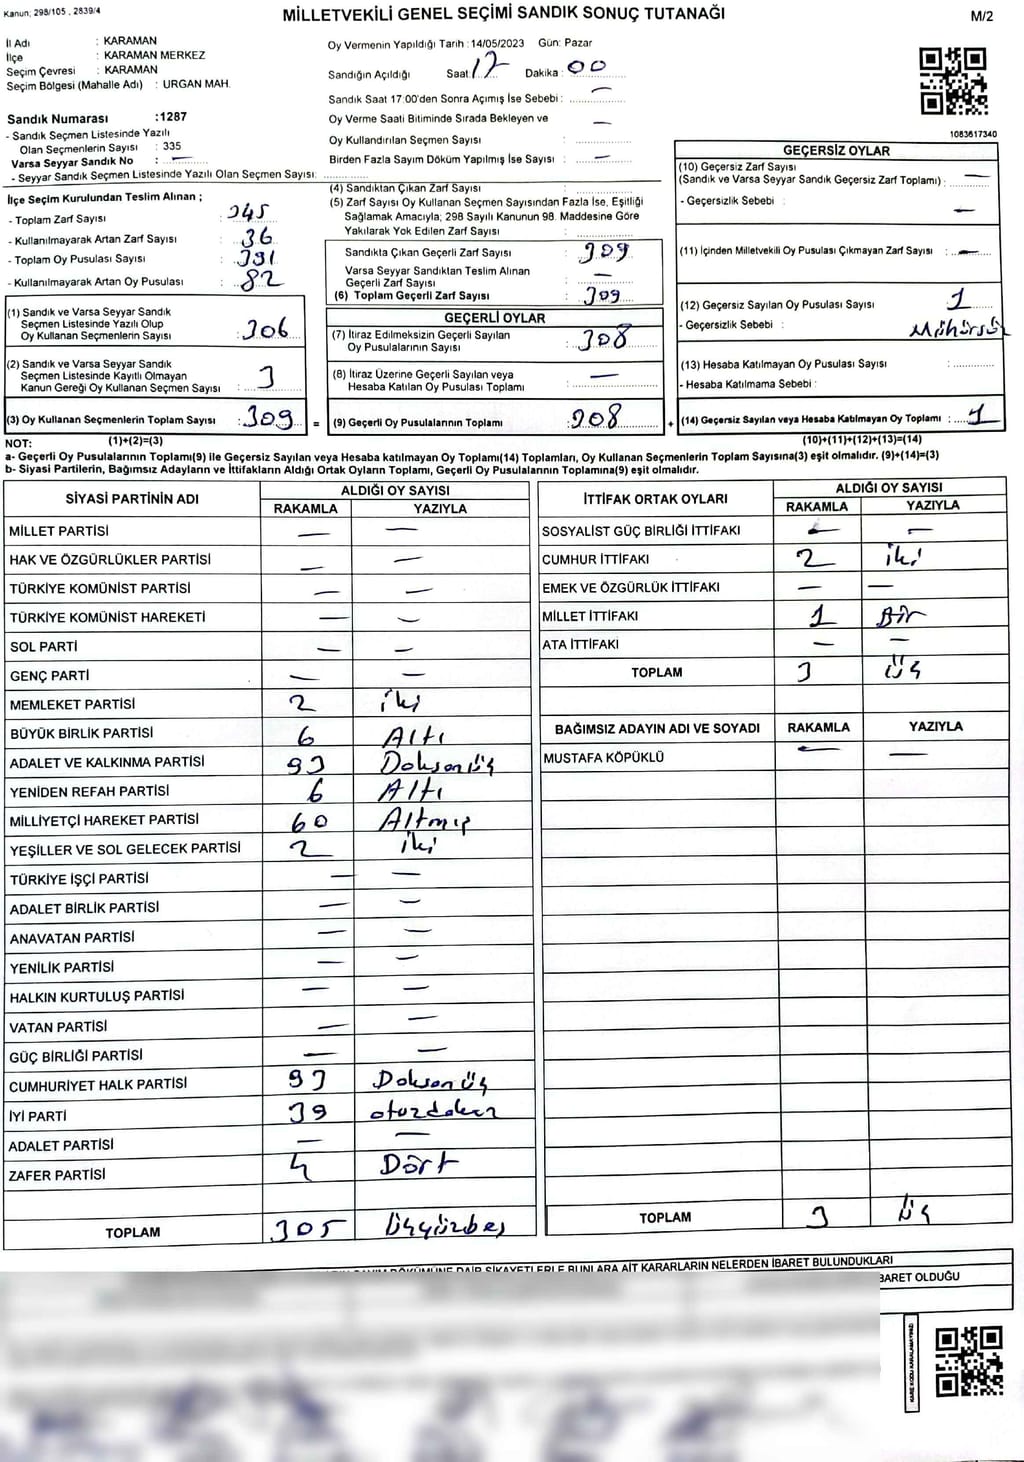 Kanun; 298/105 , 2839/4
MİLLETVEKİLİ GENEL SEÇİMİ SANDIK SONUÇ TUTANAĞI
M/2
İl Adı : KARAMAN
İlçe : KARAMAN MERKEZ
Seçim Çevresi : KARAMAN
Seçim Bölgesi (Mahalle Adı) : URGAN MAH.
Sandık Numarası :1287
- Sandık Seçmen Listesinde Yazılı
Olan Seçmenlerin Sayısı : 335
Varsa Seyyar Sandık No : —
- Seyyar Sandık Seçmen Listesinde Yazılı Olan Seçmen Sayısı:
Oy Vermenin Yapıldığı Tarih :14/05/2023 Gün: Pazar
Sandığın Açıldığı Saat 17 Dakika : 00
Sandık Saat 17:00'den Sonra Açımış İse Sebebi : —
Oy Verme Saati Bitiminde Sırada Bekleyen ve
Oy Kullandırılan Seçmen Sayısı : —
Birden Fazla Sayım Döküm Yapılmış İse Sayısı : —
1083617340
İlçe Seçim Kurulundan Teslim Alınan ;
- Toplam Zarf Sayısı : 345
- Kullanılmayarak Artan Zarf Sayısı : 36
- Toplam Oy Pusulası Sayısı : 391
- Kullanılmayarak Artan Oy Pusulası : 82
(1) Sandık ve Varsa Seyyar Sandık
Seçmen Listesinde Yazılı Olup
Oy Kullanan Seçmenlerin Sayısı : 306
(2) Sandık ve Varsa Seyyar Sandık
Seçmen Listesinde Kayıtlı Olmayan
Kanun Gereği Oy Kullanan Seçmen Sayısı : 3
(3) Oy Kullanan Seçmenlerin Toplam Sayısı : 309 =
(4) Sandıktan Çıkan Zarf Sayısı :
(5) Zarf Sayısı Oy Kullanan Seçmen Sayısından Fazla İse, Eşitliği
Sağlamak Amacıyla; 298 Sayılı Kanunun 98. Maddesine Göre
Yakılarak Yok Edilen Zarf Sayısı :
Sandıkta Çıkan Geçerli Zarf Sayısı : 309
Varsa Seyyar Sandıktan Teslim Alınan
Geçerli Zarf Sayısı : —
(6) Toplam Geçerli Zarf Sayısı : 309
GEÇERLİ OYLAR
(7) İtiraz Edilmeksizin Geçerli Sayılan
Oy Pusulalarının Sayısı : 308
(8) İtiraz Üzerine Geçerli Sayılan veya
Hesaba Katılan Oy Pusulası Toplamı : —
(9) Geçerli Oy Pusulalarının Toplamı : 308 +
GEÇERSİZ OYLAR
(10) Geçersiz Zarf Sayısı
(Sandık ve Varsa Seyyar Sandık Geçersiz Zarf Toplamı) : —
- Geçersizlik Sebebi : —
(11) İçinden Milletvekili Oy Pusulası Çıkmayan Zarf Sayısı : —
(12) Geçersiz Sayılan Oy Pusulası Sayısı : 1
- Geçersizlik Sebebi : Mühürsüz
(13) Hesaba Katılmayan Oy Pusulası Sayısı :
- Hesaba Katılmama Sebebi :
(14) Geçersiz Sayılan veya Hesaba Katılmayan Oy Toplamı : 1
NOT: (1)+(2)=(3) (10)+(11)+(12)+(13)=(14)
a- Geçerli Oy Pusulalarının Toplamı(9) ile Geçersiz Sayılan veya Hesaba katılmayan Oy Toplamı(14) Toplamları, Oy Kullanan Seçmenlerin Toplam Sayısına(3) eşit olmalıdır. (9)+(14)=(3)
b- Siyasi Partilerin, Bağımsız Adayların ve İttifakların Aldığı Ortak Oyların Toplamı, Geçerli Oy Pusulalarının Toplamına(9) eşit olmalıdır.
SİYASİ PARTİNİN ADI ALDIĞI OY SAYISI
RAKAMLA YAZIYLA
MİLLET PARTİSİ — —
HAK VE ÖZGÜRLÜKLER PARTİSİ — —
TÜRKİYE KOMÜNİST PARTİSİ — —
TÜRKİYE KOMÜNİST HAREKETİ — —
SOL PARTİ — —
GENÇ PARTİ — —
MEMLEKET PARTİSİ 2 iki
BÜYÜK BİRLİK PARTİSİ 6 Altı
ADALET VE KALKINMA PARTİSİ 93 Doksanüç
YENİDEN REFAH PARTİSİ 6 Altı
MİLLİYETÇİ HAREKET PARTİSİ 60 Altmış
YEŞİLLER VE SOL GELECEK PARTİSİ 2 iki
TÜRKİYE İŞÇİ PARTİSİ — —
ADALET BİRLİK PARTİSİ — —
ANAVATAN PARTİSİ — —
YENİLİK PARTİSİ — —
HALKIN KURTULUŞ PARTİSİ — —
VATAN PARTİSİ — —
GÜÇ BİRLİĞİ PARTİSİ — —
CUMHURİYET HALK PARTİSİ 93 Doksanüç
İYİ PARTİ 39 otuzdokuz
ADALET PARTİSİ — —
ZAFER PARTİSİ 4 Dört
TOPLAM 305 Üçyüzbeş
İTTİFAK ORTAK OYLARI ALDIĞI OY SAYISI
RAKAMLA YAZIYLA
SOSYALİST GÜÇ BİRLİĞİ İTTİFAKI — —
CUMHUR İTTİFAKI 2 iki
EMEK VE ÖZGÜRLÜK İTTİFAKI — —
MİLLET İTTİFAKI 1 Bir
ATA İTTİFAKI — —
TOPLAM 3 Üç
BAĞIMSIZ ADAYIN ADI VE SOYADI RAKAMLA YAZIYLA
MUSTAFA KÖPÜKLÜ — —
TOPLAM 3 Üç
DÖKÜMÜNE DAİR ŞİKAYETLERLE BUNLARA AİT KARARLARIN NELERDEN İBARET BULUNDUKLARI
BARET OLDUĞU
KARE KODU KARALAMAYINIZ!